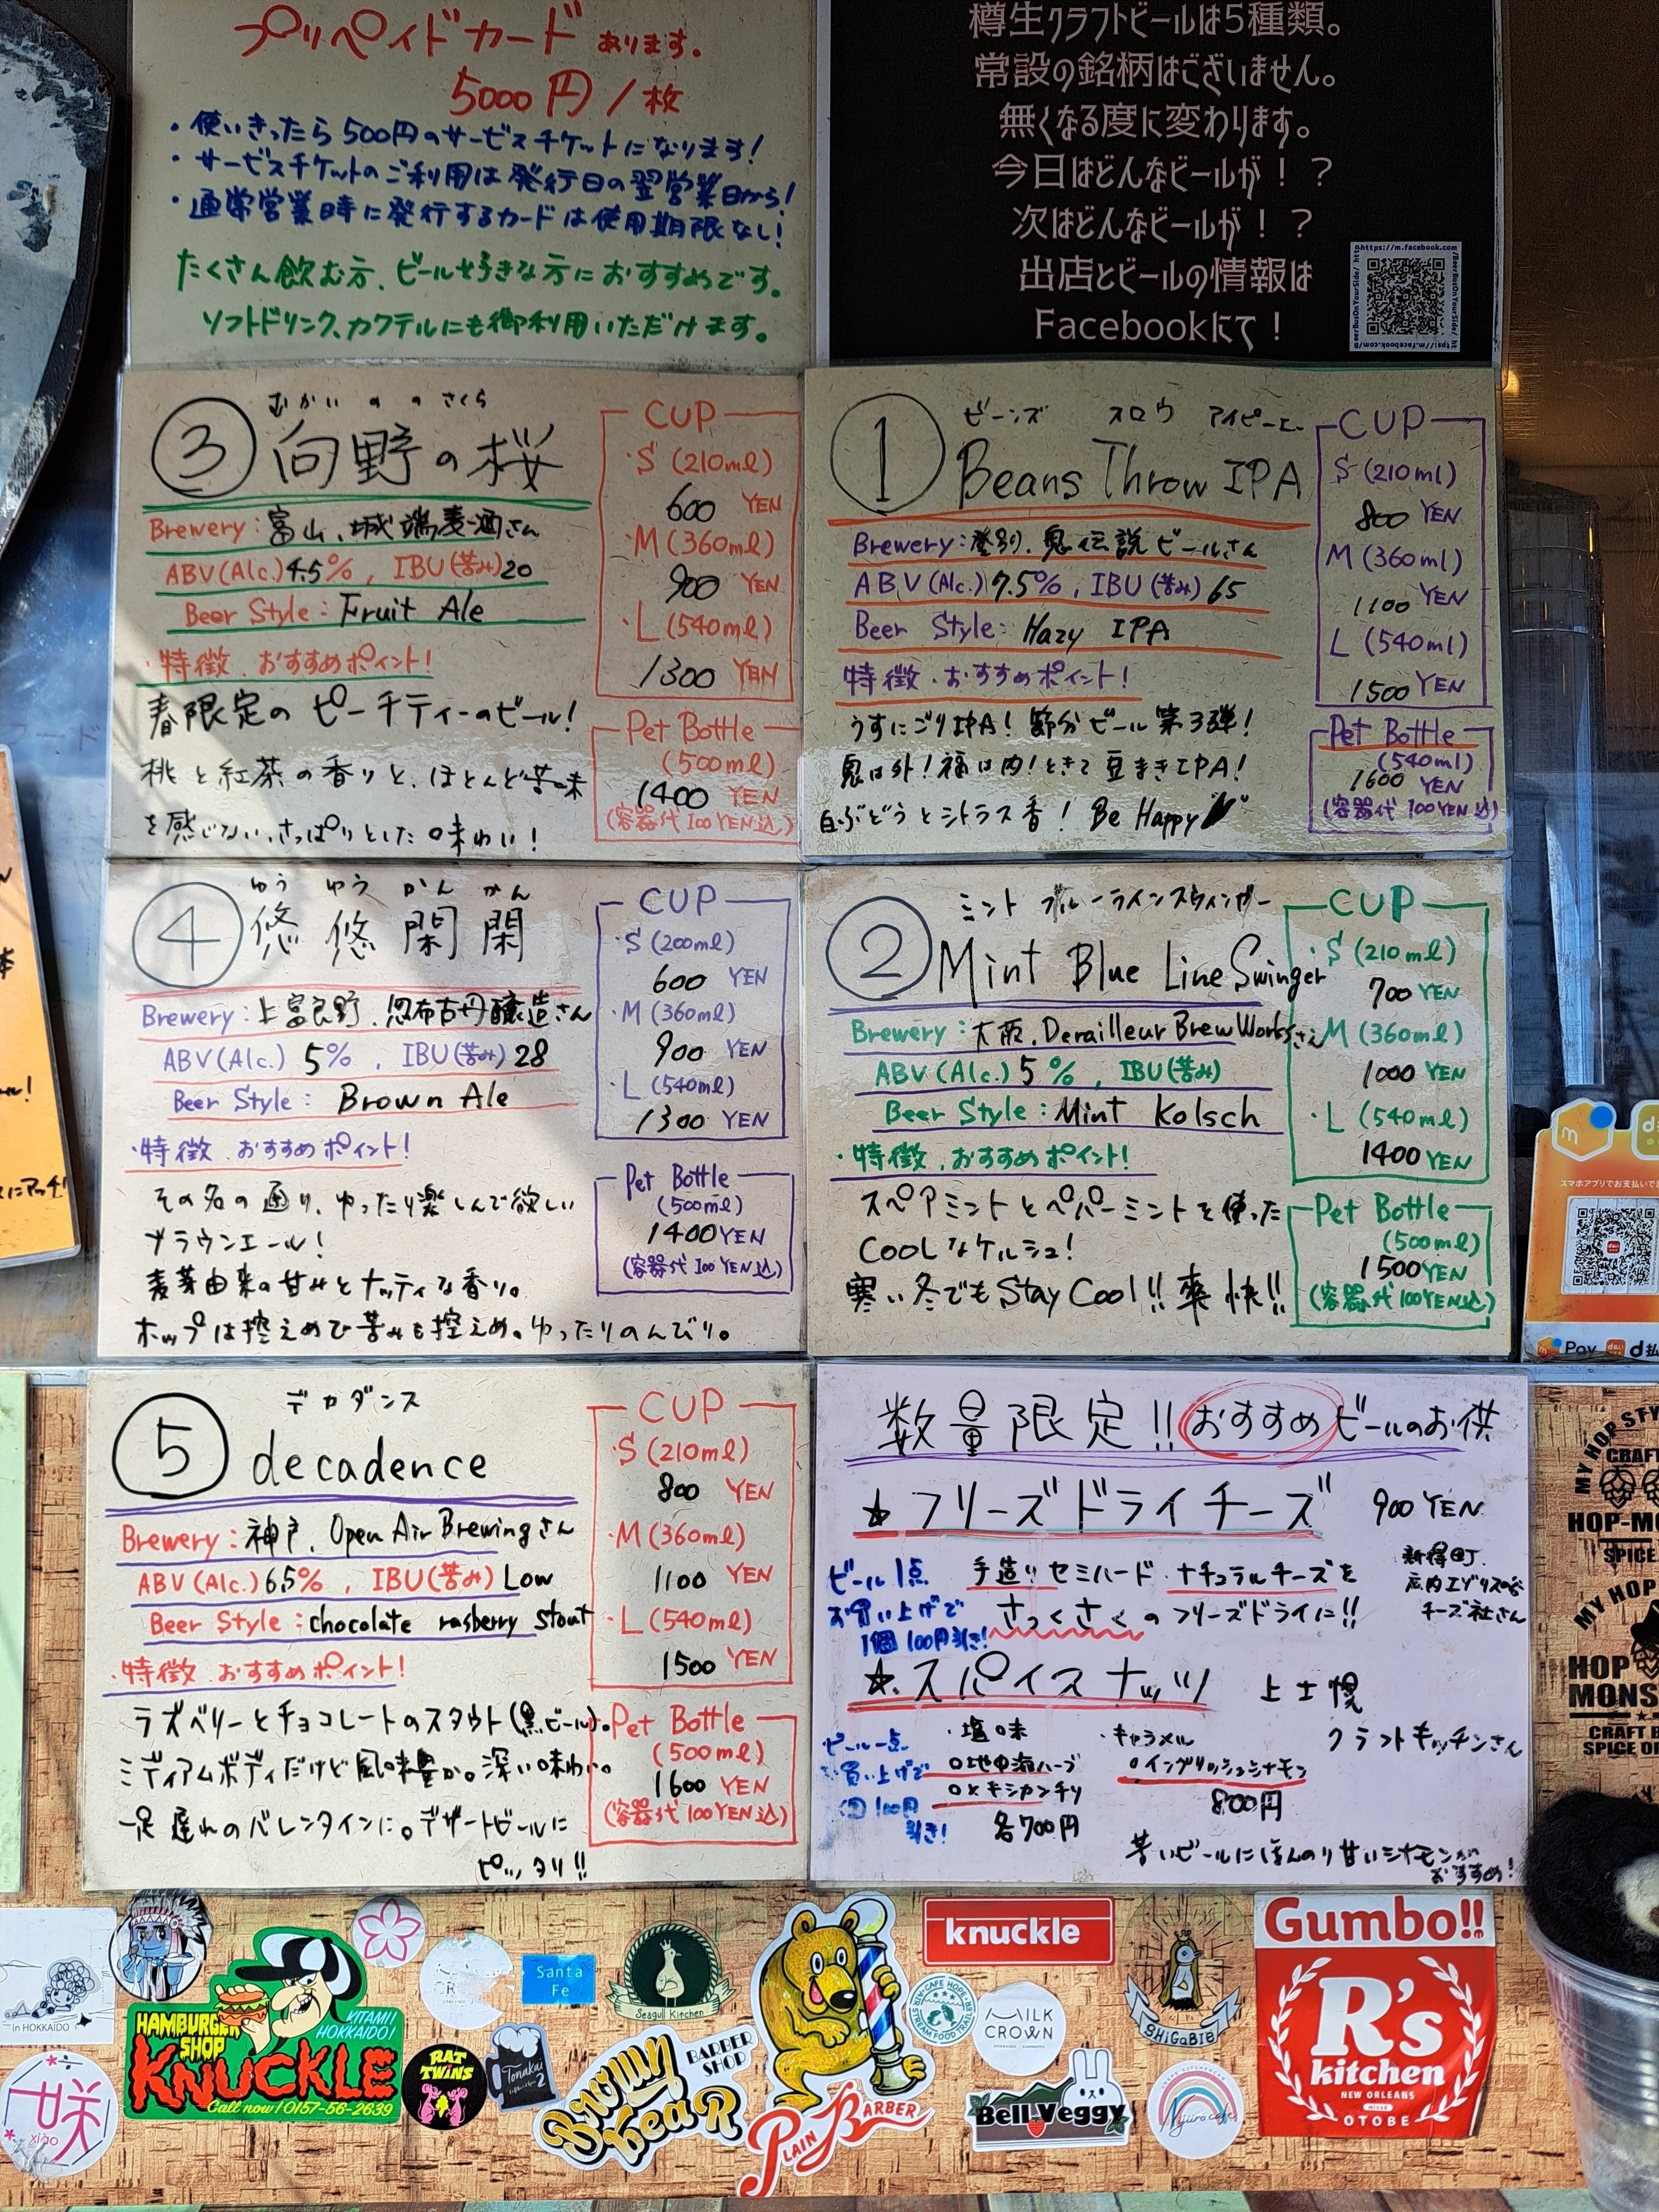 プリペイドカード あります。
5000円/枚
・使いきったら500円のサービスチケットになります!
・サービスチケットのご利用は発行日の翌営業日から!
・通常営業時に発行するカードは使用期限なし!
たくさん飲む方、ビール好きな方におすすめです。
ソフトドリンク、カクテルにも御利用いただけます。
樽生クラフトビールは5種類。
常設の銘柄はございません。
無くなる度に変わります。
今日はどんなビールが!?
次はどんなビールが!?
出店とビールの情報は
Facebookにて!
https://m.facebook.com/BeerBusOnYourSide/
③ 向野の桜
むかい の の さくら
Brewery:富山、城端麦酒さん
ABV(Alc.)4.5%, IBU(苦み)20
Beer Style:Fruit Ale
・特徴、おすすめポイント!
春限定のピーチティーのビール!
桃と紅茶の香りと、ほとんど苦味
を感じない、さっぱりとした味わい!
CUP
・S(210ml)
600 YEN
・M(360ml)
900 YEN
・L(540ml)
1300 YEN
Pet Bottle
(500ml)
1400 YEN
(容器代100YEN込)
ビーンズ スロウ アイピーエー
① Beans Throw IPA
Brewery:登別、鬼伝説ビールさん
ABV(Alc.)7.5%, IBU(苦み)65
Beer Style:Hazy IPA
特徴、おすすめポイント!
うすにごりIPA!節分ビール第3弾!
鬼は外!福は内!ときて豆まきIPA!
白ぶどうとシトラス香! Be Happy
CUP
S(210ml)
800 YEN
M(360ml)
1100 YEN
L(540ml)
1500 YEN
Pet Bottle
(540ml)
1600 YEN
(容器代100YEN込)
ゆう ゆう かん かん
④ 悠悠閑閑
Brewery:上富良野、忽布古丹醸造さん
ABV(Alc.) 5%, IBU(苦み)28
Beer Style: Brown Ale
・特徴、おすすめポイント!
その名の通り、ゆったり楽しんで欲しい
ブラウンエール!
麦芽由来の甘みとナッティな香り。
ホップは控えめで苦みも控えめ。ゆったりのんびり。
CUP
・S(200ml)
600 YEN
・M(360ml)
900 YEN
・L(540ml)
1300 YEN
Pet Bottle
(500ml)
1400YEN
(容器代100YEN込)
ミント ブルーラインスウィンガー
② Mint Blue Line Swinger
Brewery:大阪、Derailleur Brew Worksさん
ABV(Alc.)5%, IBU(苦み)
Beer Style:Mint Kolsch
・特徴、おすすめポイント!
スペアミントとペパーミントを使った
COOLなケルシュ!
寒い冬でもStay Cool!!爽快!!
CUP
・S(210ml)
700 YEN
・M(360ml)
1000 YEN
・L(540ml)
1400 YEN
Pet Bottle
(500ml)
1500YEN
(容器代100YEN込)
デカダンス
⑤ decadence
Brewery:神戸、Open Air Brewingさん
ABV(Alc.)6.5%, IBU(苦み)Low
Beer Style:chocolate rasberry stout
・特徴、おすすめポイント!
ラズベリーとチョコレートのスタウト(黒ビール)。
ミディアムボディだけど風味豊か。深い味わい。
一足遅れのバレンタインに。デザートビールに
ピッタリ!!
CUP
・S(210ml)
800 YEN
・M(360ml)
1100 YEN
・L(540ml)
1500 YEN
Pet Bottle
(500ml)
1600 YEN
(容器代100YEN込)
数量限定!!おすすめビールのお供
★フリーズドライチーズ 900 YEN
ビール1点
お買い上げで
1個100円引き!
手造りセミハード ナチュラルチーズを
さっくさくのフリーズドライに!!
新得町、
チーズ社さん
★スパイスナッツ 上士幌
クラフトキッチンさん
ビール一点
お買い上げで
100円
引き!
・塩味
○地中海ハーブ
○メキシカンチリ
各700円
・キャラメル
○イングリッシュシナモン
800円
苦いビールにほんのり甘いシナモンが
おすすめ!
スマホアプリでお支払い
Pay d払
MY HOP STY
CRAFT
HOP-MO
SPICE
MY HOP
HOP
MONS
CRAFT B
SPICE OR
in HOKKAIDO
HAMBURGER
SHOP
KNUCKLE
KITAMI
HOKKAIDO!
Call now! 0157-56-2639
Santa
Fe
Seagull Kitchen
RAT
TWINS
Tonakai
BARBER
SHOP
Brolly
beaR
PLAIN BARBER
knuckle
MILK
CROWN
Bell Veggy
SHiGaBIE
Nijiiro cafe
xiao
Gumbo!!
R's
kitchen
NEW ORLEANS
OTOBE